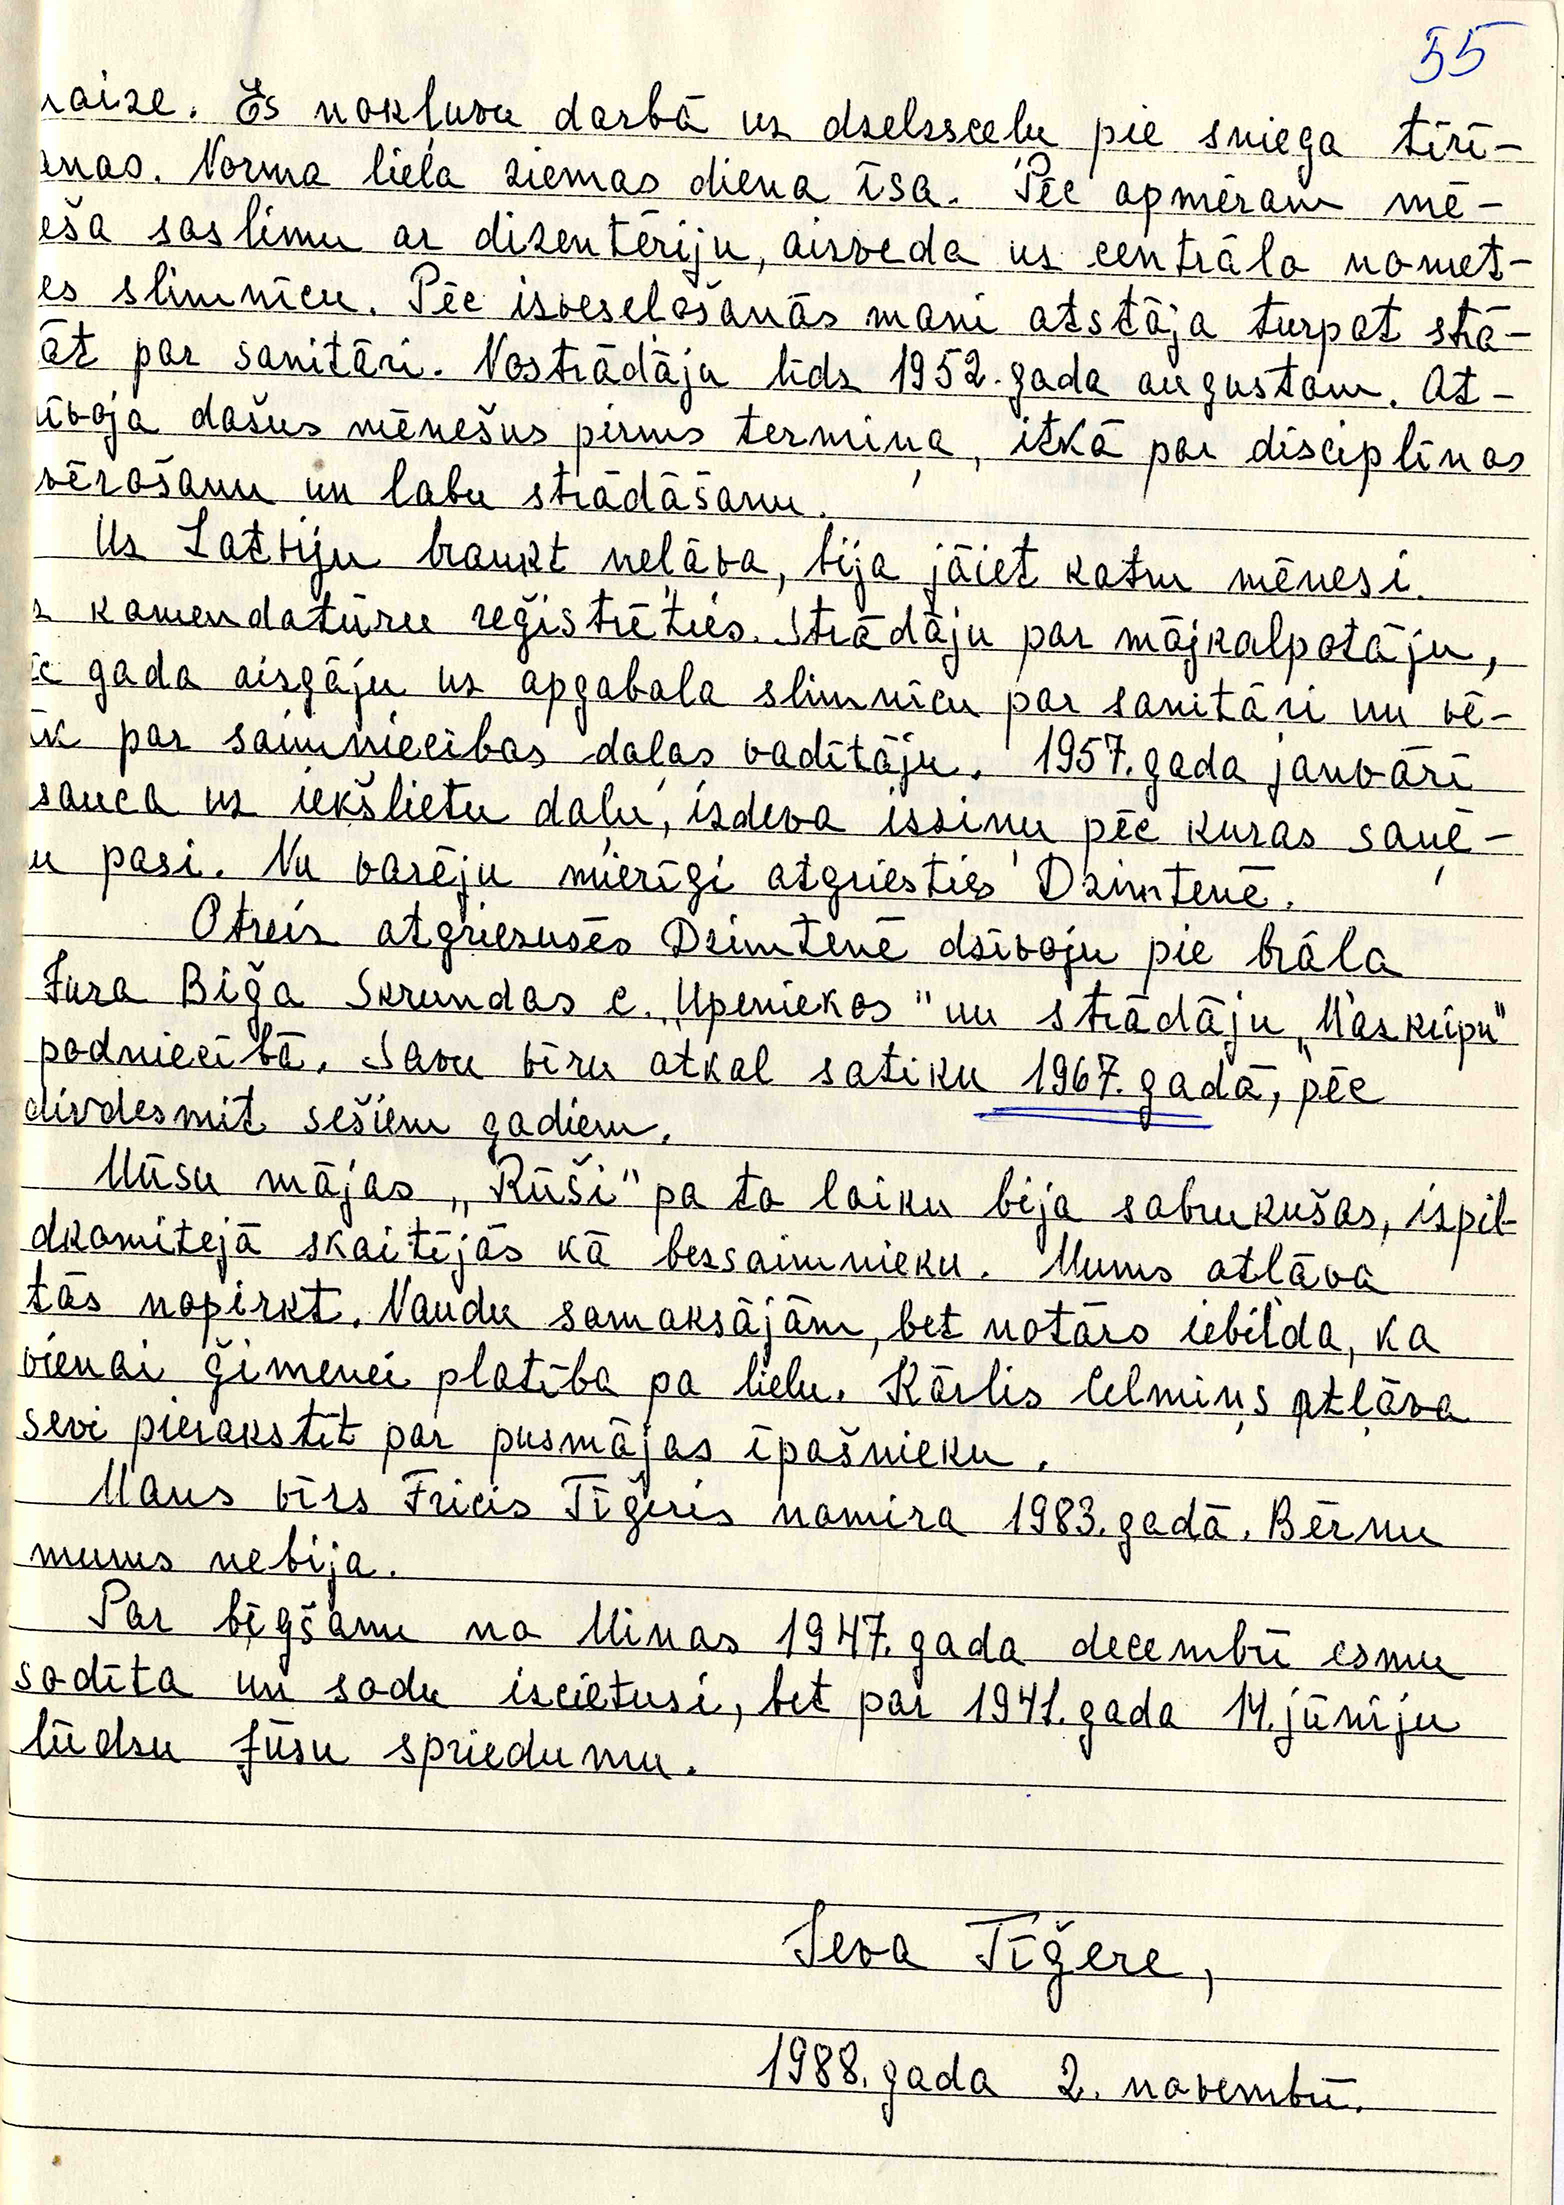 55
raize. Es nokļuvu darbā uz dzelzsceļu pie sniega tīrī-
anas. Norma liela ziemas diena īsa. Pēc apmēram mē-
eša saslimu ar dizentēriju, aizveda uz centrālo nomet-
es slimnīcu. Pēc izveseļošanās mani atstāja turpat strā-
āt par sanitāri. Nostrādāju līdz 1952. gada augustam. At-
īvoja dažus mēnešus pirms termiņa, itkā par disciplīnas
vērošanu un labu strādāšanu.
Uz Latviju braukt neļāva, bija jāiet katru mēnesi
z kamendatūru reģistrēties. Strādāju par mājkalpotāju,
ēc gada aizgāju uz apgabala slimnīcu par sanitāri un vē-
āk par saimniecības daļas vadītāju. 1957. gada janvārī
sauca uz iekšlietu daļu, izdeva izziņu pēc kuras saņē-
u pasi. Nu varēju mierīgi atgriesties Dzimtenē.
Otreiz atgriezusēs Dzimtenē dzīvoju pie brāļa
Jura Biģa Skrundas c. „Upeniekos" un strādāju „Mazkūpu"
podniecībā. Savu vīru atkal satiku 1967. gadā, pēc
divdesmit sešiem gadiem.
Mūsu mājas „Rūši" pa to laiku bija sabrukušas, izpil-
dkomitejā skaitījās kā bezsaimnieku. Mums atļāva
tās nopirkt. Naudu samaksājām, bet notārs iebilda, ka
vienai ģimenei platība pa lielu. Kārlis Celmiņš atļāva
sevi pierakstīt par pusmājas īpašnieku.
Mans vīrs Fricis Tīģeris nomira 1983. gadā. Bērnu
mums nebija.
Par bēgšanu no Minas 1947. gada decembrī esmu
sodīta un sodu izcietusi, bet par 1941. gada 14. jūniju
lūdzu Jūsu spriedumu.
Ieva Tīģere,
1988. gada 2. novembrī.